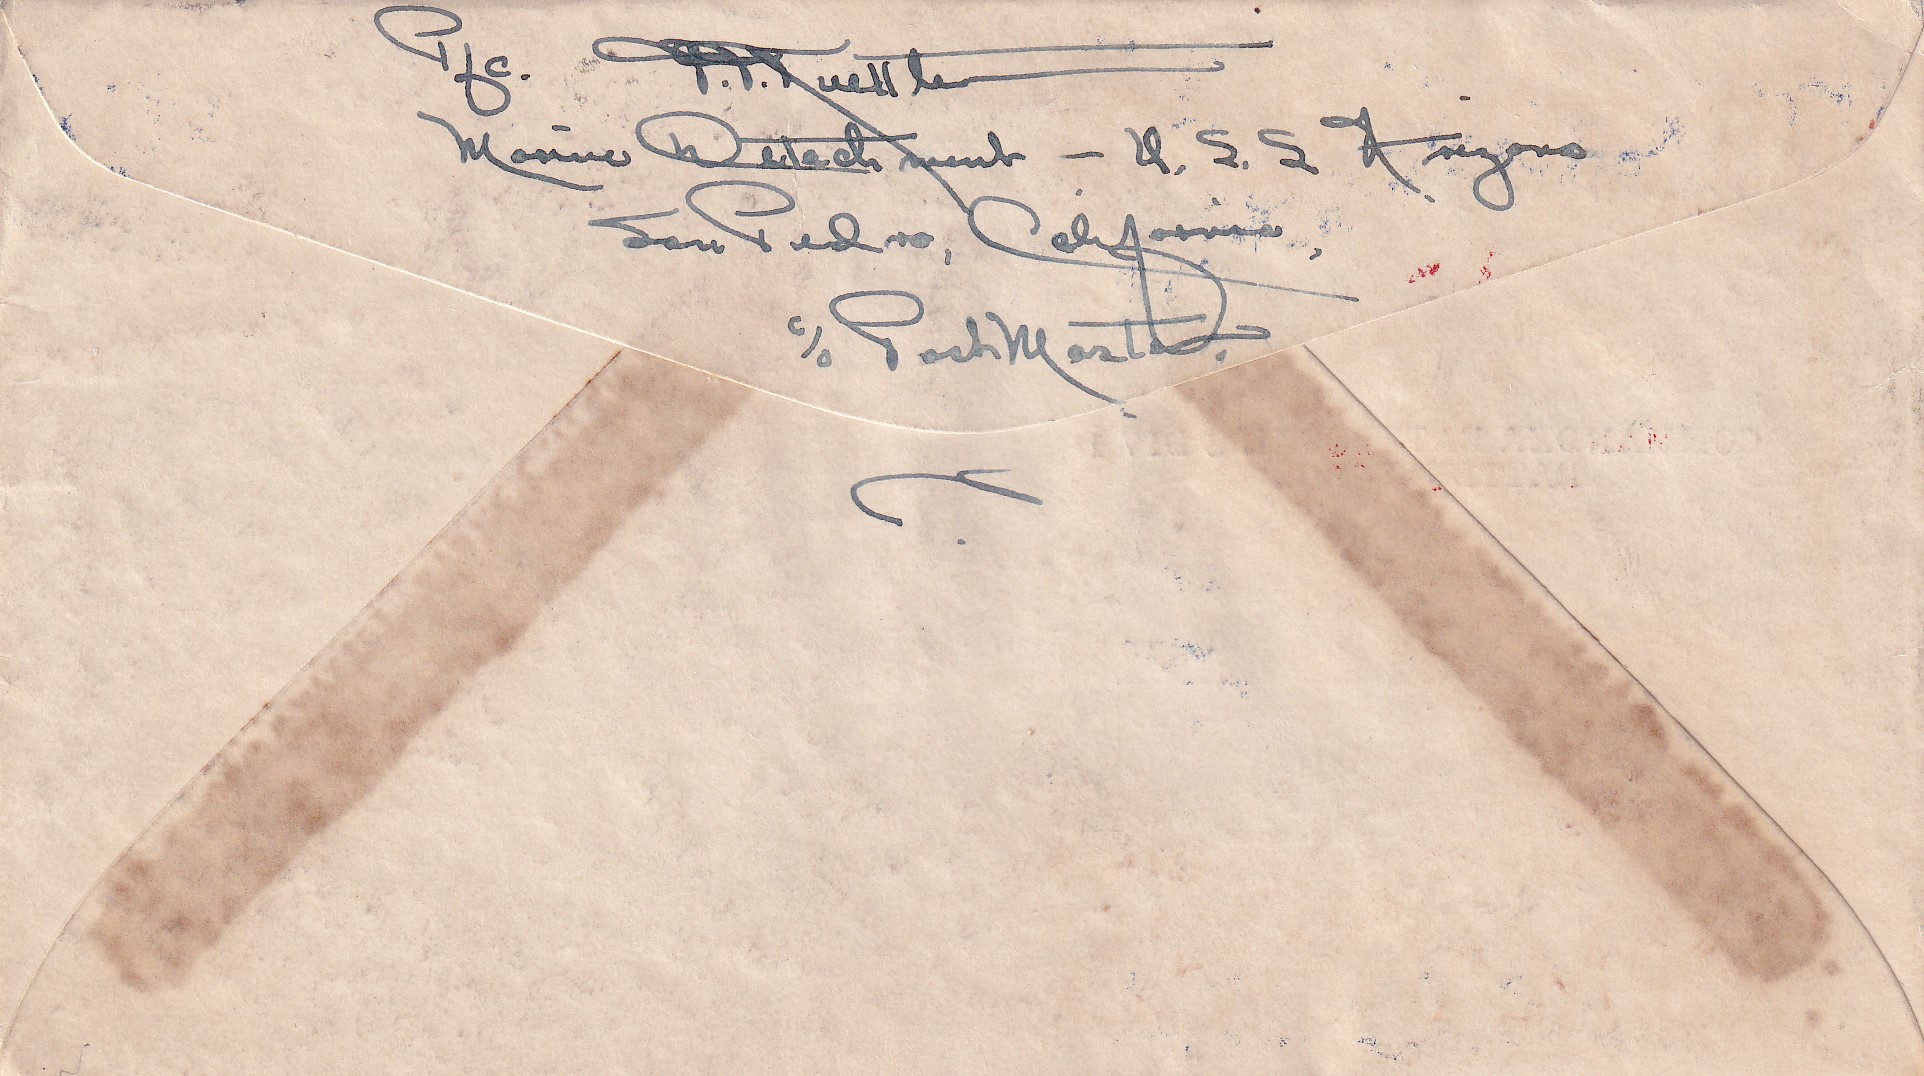 Pfc.
Marine Detachment – U.S.S Arizona
San Pedro, California,
c/o PostMaster.